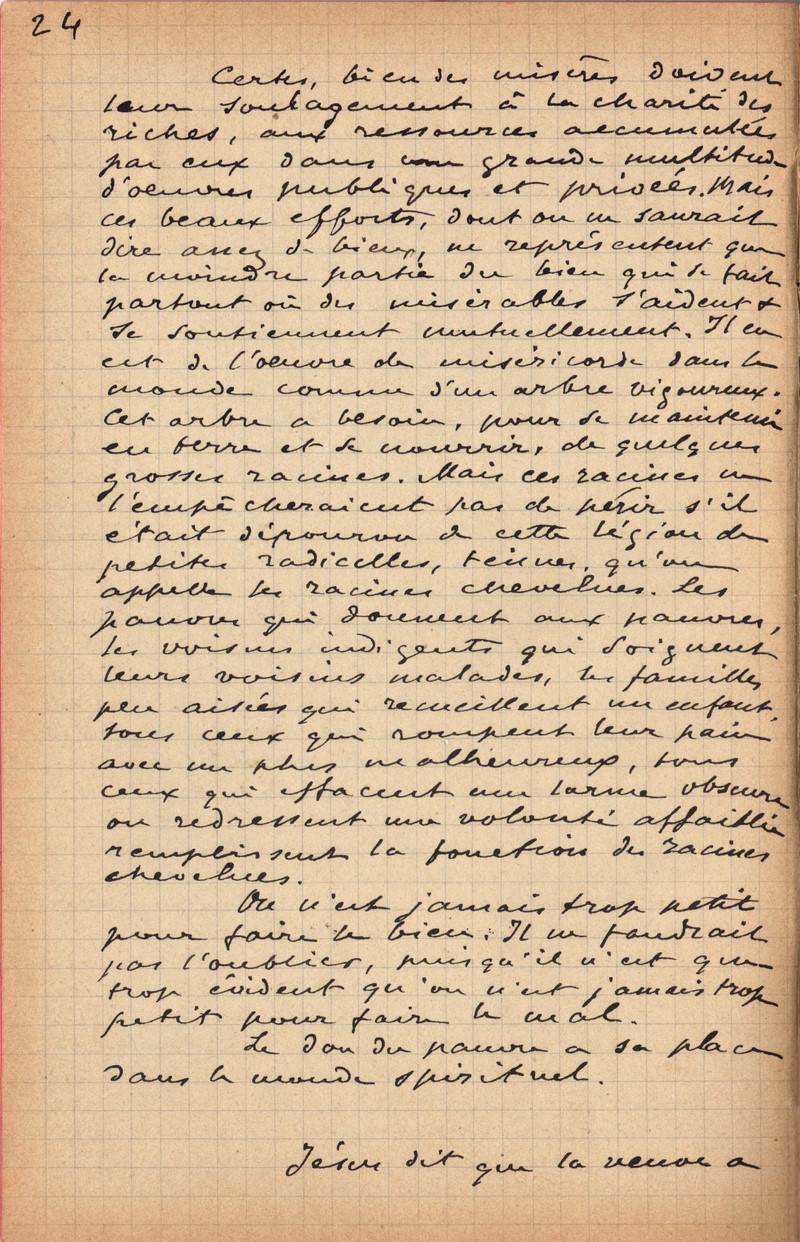 24
Certes, bien des misères doivent
leur soulagement à la charité des
riches, aux ressources accumulées
par eux dans une grande multitude
d'oeuvres publiques et privées. Mais
ces beaux efforts, dont on ne saurait
dire assez de bien, ne représentent que
la moindre partie du bien qui se fait
partout où des misérables s'aident &
se soutiennent mutuellement. Il en
est de l'oeuvre de miséricorde dans le
monde comme d'un arbre vigoureux.
Cet arbre a besoin, pour se maintenir
en terre et se nourrir, de quelques
grosses racines. Mais ces racines ne
l'empêcheraient pas de périr s'il
était dépourvu de cette légion de
petites radicelles, ténues, qu'on
appelle les racines chevelues. Les
pauvres qui donnent aux pauvres,
les voisins indigents qui soignent
leurs voisins malades, les familles
peu aisées qui recueillent un enfant,
tous ceux qui rompent leur pain
avec un plus malheureux, tous
ceux qui effacent une larme obscure
ou redressent une volonté affaiblie
remplissent la fonction des racines
chevelues.
On n'est jamais trop petit
pour faire le bien. Il ne faudrait
pas l'oublier, puisqu'il n'est que
trop évident qu'on n'est jamais trop
petit pour faire le mal.
Le don du pauvre a sa place
dans le monde spirituel.
Jésus dit que la veuve a